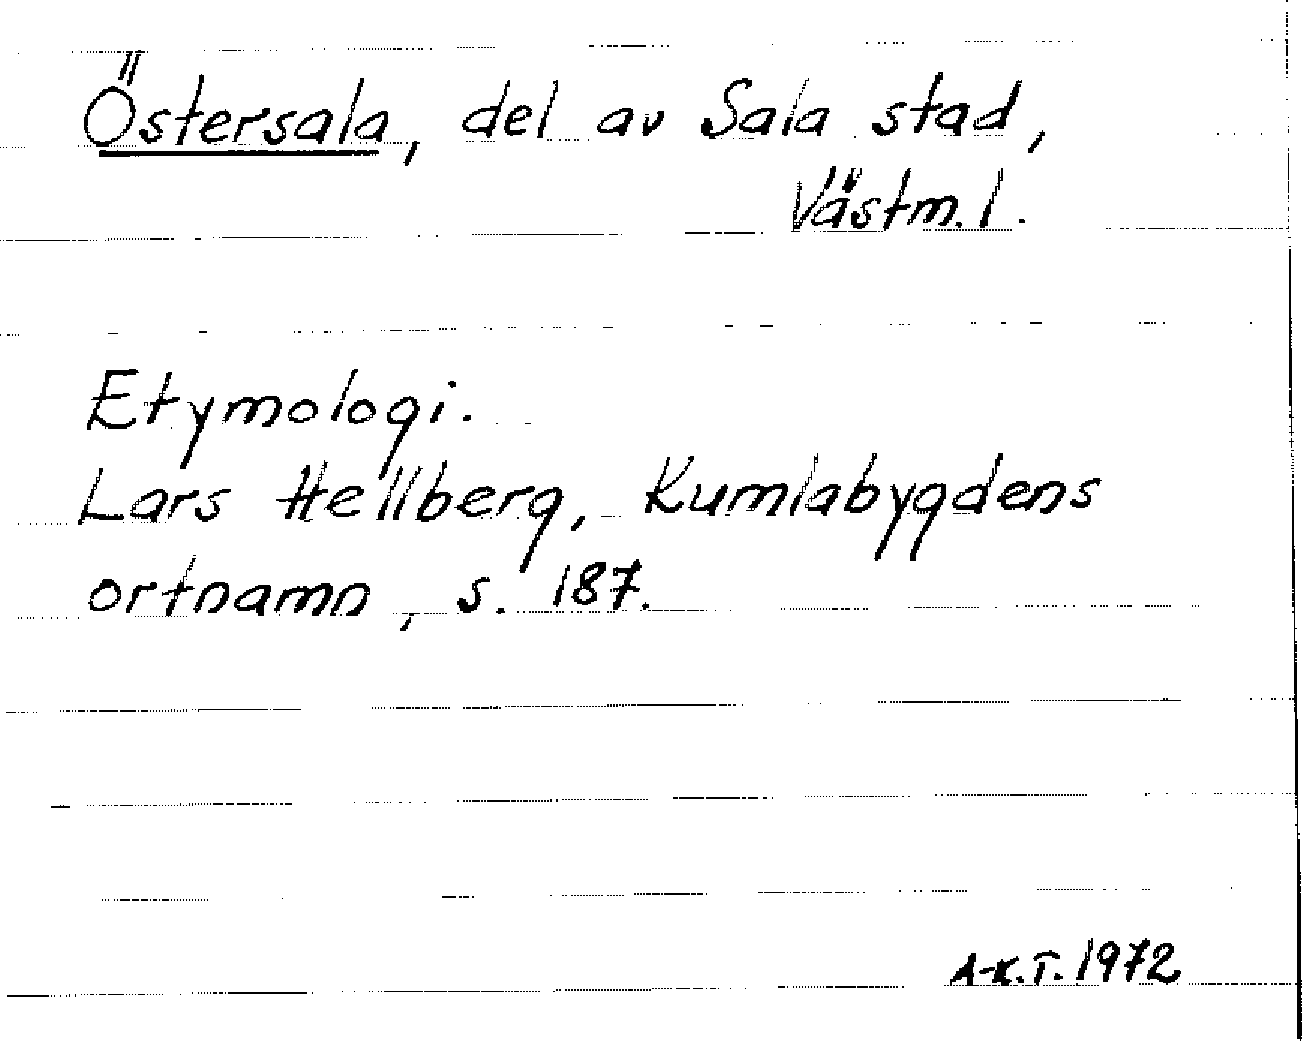 Östersala, del av Sala stad,
Västm. l.
Etymologi.
Lars Hellberg, Kumlabygdens
ortnamn, s. 187.
A-K.T. 1972